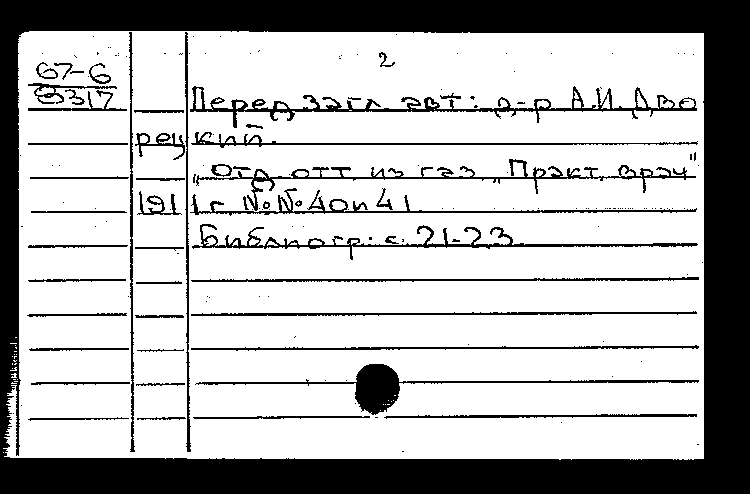 2
67-6
8317
Перед загл. авт: д-р А.И. Дво
рецкий.
„Отд. отт. из газ. „Практ. врач"
1911 г. №№ 40 и 41.
Библиогр.: с. 21-23.